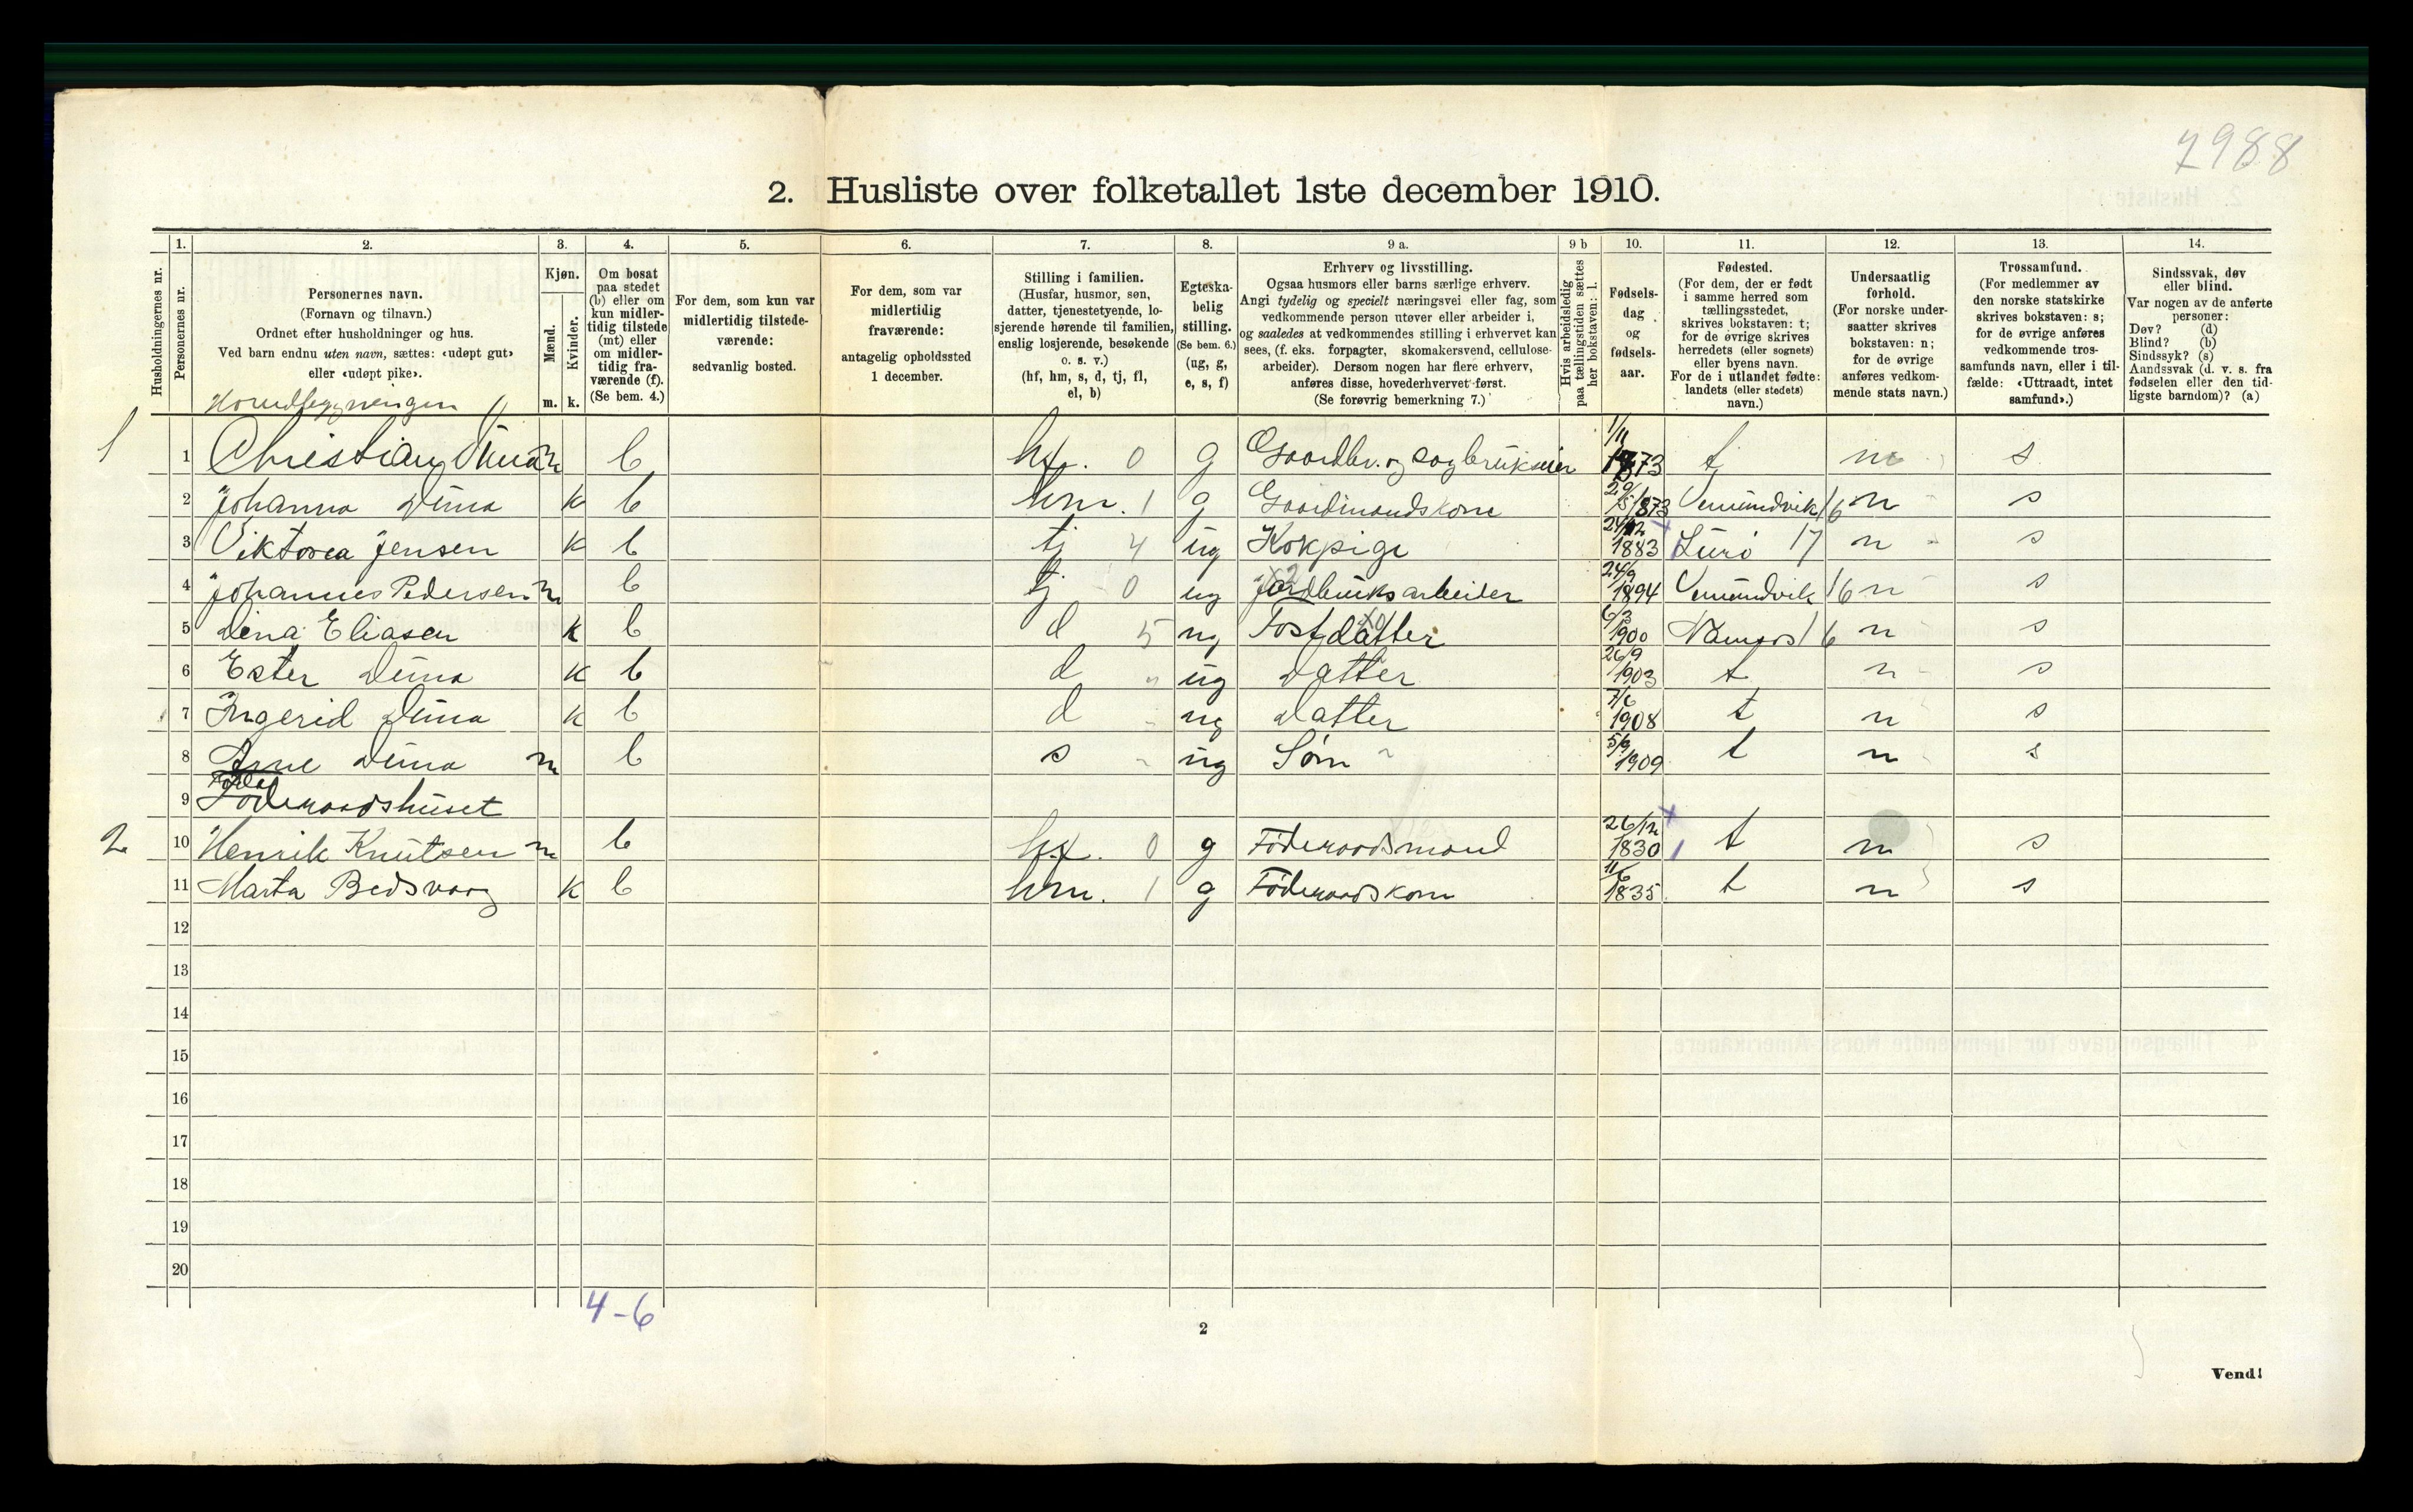 7988
2. Husliste over folketallet 1ste december 1910.
Husholdningernes nr.
1.
Personernes nr.
2.
Personernes navn.
(Fornavn og tilnavn.)
Ordnet efter husholdninger og hus.
Ved barn endnu uten navn, sættes: «udøpt gut»
eller «udøpt pike».
3.
Kjøn.
Mænd.
Kvinder.
m. k.
4.
Om bosat
paa stedet
(b) eller om
kun midler-
tidig tilstede
(mt) eller
om midler-
tidig fra-
værende (f).
(Se bem. 4.)
5.
For dem, som kun var
midlertidig tilstede-
værende:
sedvanlig bosted.
6.
For dem, som var
midlertidig
fraværende:
antagelig opholdssted
1 december.
7.
Stilling i familien.
(Husfar, husmor, søn,
datter, tjenestetyende, lo-
sjerende hørende til familien,
enslig losjerende, besøkende
o. s. v.)
(hf, hm, s, d, tj, fl,
el, b)
8.
Egteska-
belig
stilling.
(Se bem. 6.)
(ug, g,
e, s, f)
9 a.
Erhverv og livsstilling.
Ogsaa husmors eller barns særlige erhverv.
Angi tydelig og specielt næringsvei eller fag, som
vedkommende person utøver eller arbeider i,
og saaledes at vedkommendes stilling i erhvervet kan
sees, (f. eks. forpagter, skomakersvend, cellulose-
arbeider). Dersom nogen har flere erhverv,
anføres disse, hovederhvervet først.
(Se forøvrig bemerkning 7.)
9 b
Hvis arbeidsledig
paa tællingstiden sættes
her bokstaven: l.
10.
Fødsels-
dag
og
fødsels-
aar.
11.
Fødested.
(For dem, der er født
i samme herred som
tællingsstedet,
skrives bokstaven: t;
for de øvrige skrives
herredets (eller sognets)
eller byens navn.
For de i utlandet fødte:
landets (eller stedets)
navn.)
12.
Undersaatlig
forhold.
(For norske under-
saatter skrives
bokstaven: n;
for de øvrige
anføres vedkom-
mende stats navn.)
13.
Trossamfund.
(For medlemmer av
den norske statskirke
skrives bokstaven: s;
for de øvrige anføres
vedkommende tros-
samfunds navn, eller i til-
fælde: «Uttraadt, intet
samfund».)
14.
Sindssvak, døv
eller blind.
Var nogen av de anførte
personer:
Døv? (d)
Blind? (b)
Sindssyk? (s)
Aandssvak (d. v. s. fra
fødselen eller den tid-
ligste barndom)? (a)
Hovedbygningen
1 1 Christian Duna m b hf. 0 g Gaardbr. og sagbrukseier 1/11 1873 t n s
2 Johanna Duna k b hm. 1 g Gaardmandskone 29/5 1873 Vemundvik 16 n s
3 Viktoria Jensen k b tj 4 ug Kokpige 24/12 1883 Lurö 17 n s
4 Johannes Pedersen m b tj 0 ug Jordbruksarbeider 24/9 1894 Vemundvik 16 n s
5 Dina Eliasen k b d 5 ug Fostdatter 6/3 1900 Namsos 16 n s
6 Ester Duna k b d " ug Datter 26/9 1903 t n s
7 Ingerid Duna k b d - ug Datter 7/6 1908 t n s
8 Arne Duna m b s - ug Søn 5/9 1909 t n s
9 Föderaadshuset
2 10 Henrik Knutsen m b hf. 0 g Föderaadsmand 26/12 1830 t n s
11 Marta Bedsvaag k b hm. 1 g Föderaadskone 11/6 1835 t n s
12
13
14
15
16
17
18
19
20
4-6
2
Vend!